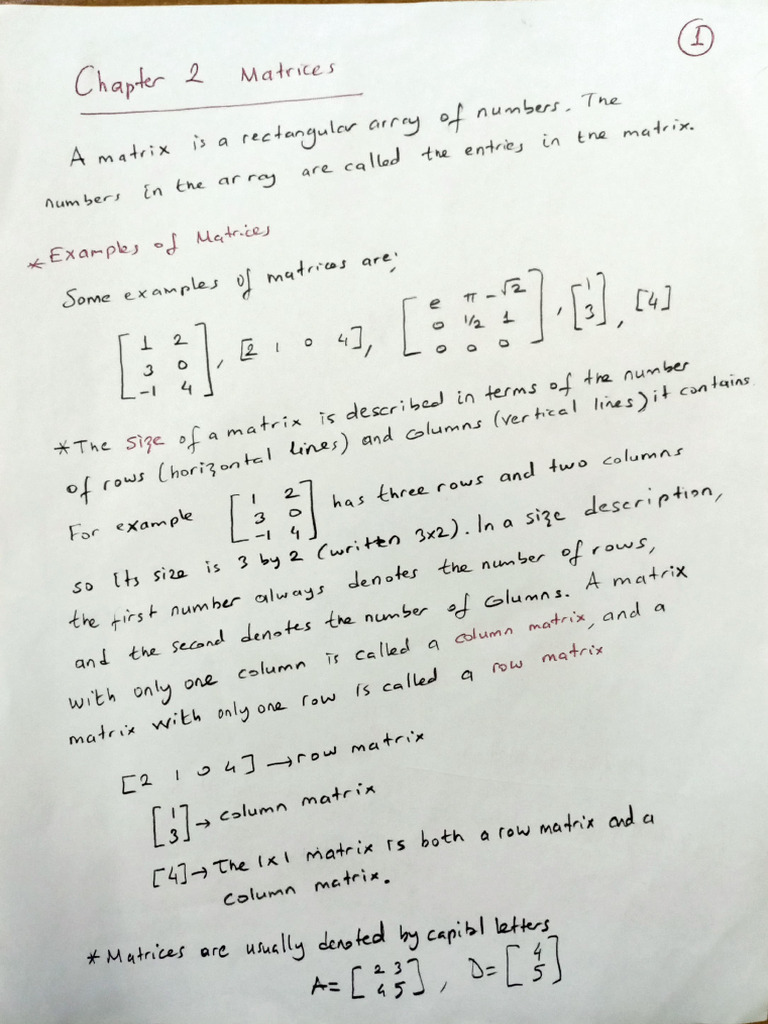 1
Chapter 2 Matrices
A matrix is a rectangular array of numbers. The
numbers in the array are called the entries in the matrix.
* Examples of Matrices
Some examples of matrices are;
[1 2
3 0
-1 4], [2 1 0 4], [e π -√2
0 1/2 1
0 0 0], [1
3], [4]
* The size of a matrix is described in terms of the number
of rows (horizontal lines) and columns (vertical lines) it contains.
For example [1 2
3 0
-1 4] has three rows and two columns
so Its size is 3 by 2 (written 3x2). In a size description,
the first number always denotes the number of rows,
and the second denotes the number of columns. A matrix
with only one column is called a column matrix, and a
matrix with only one row is called a row matrix
[2 1 0 4] → row matrix
[1
3] → column matrix
[4] → The 1x1 matrix is both a row matrix and a
column matrix.
* Matrices are usually denoted by capital letters
A = [2 3
4 5], D = [4
5]